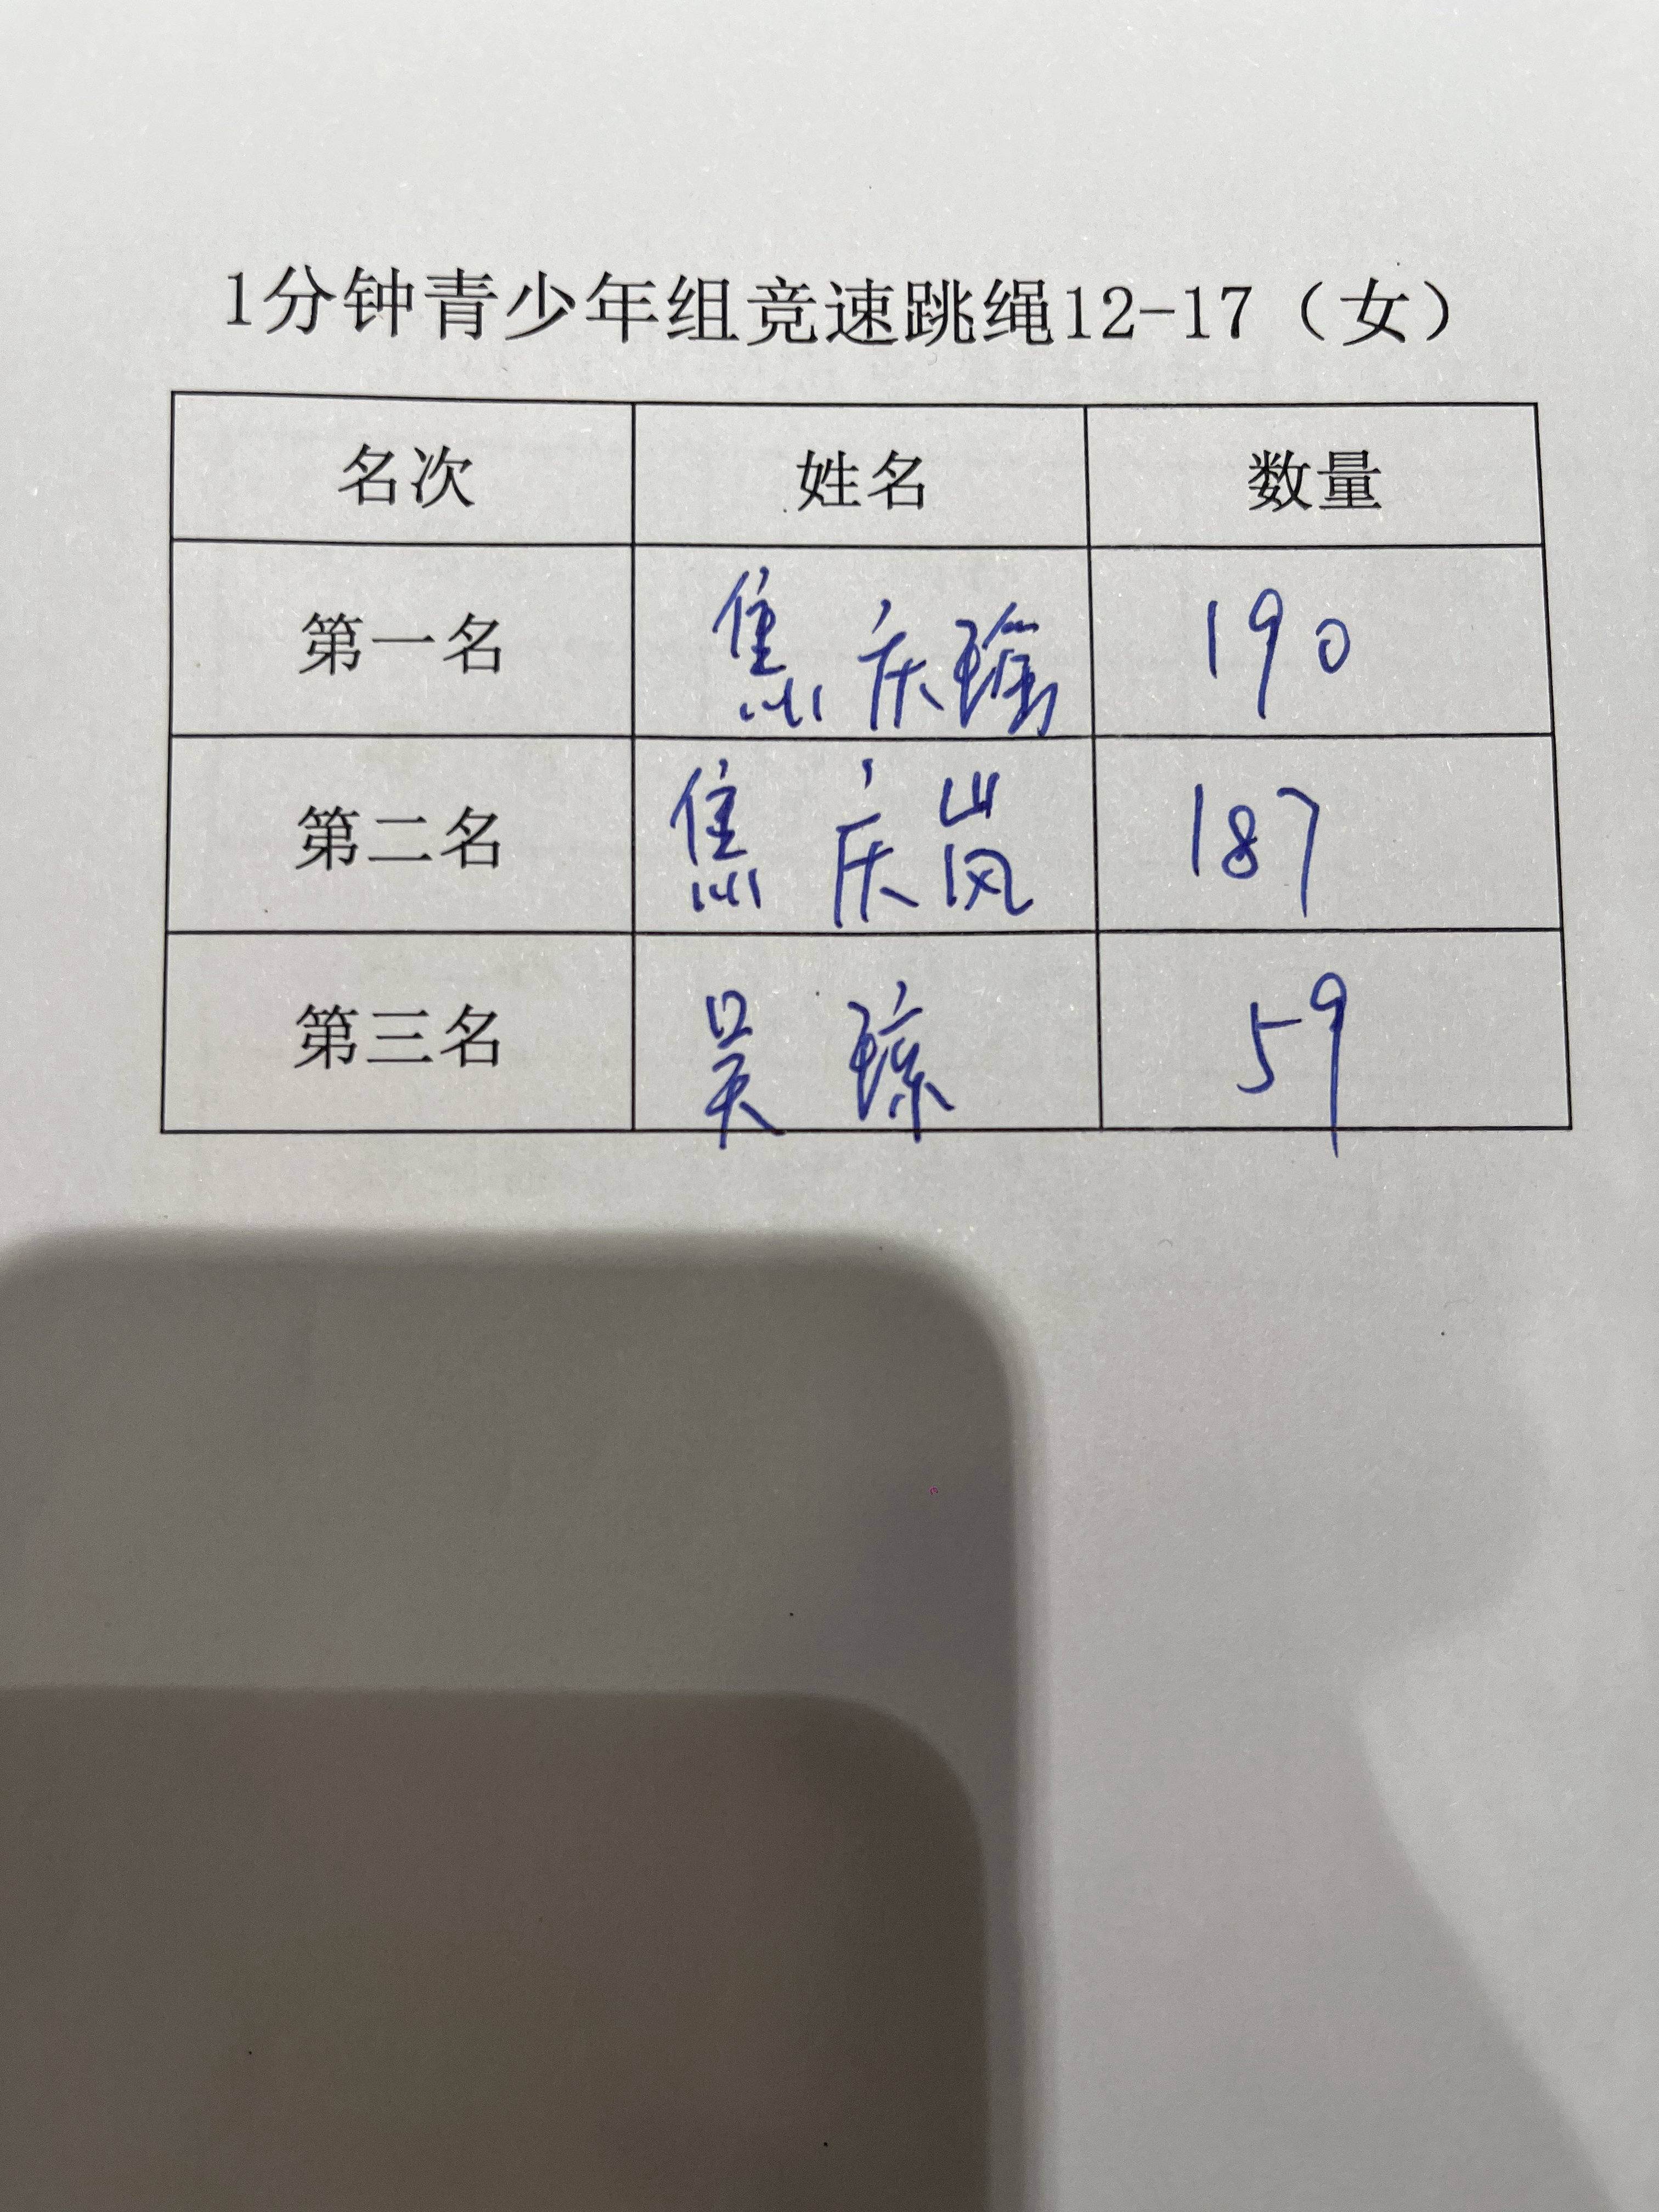 1分钟青少年组竞速跳绳12-17（女）
名次 姓名 数量
第一名 焦庆瑶 190
第二名 焦庆岚 187
第三名 吴琼 59